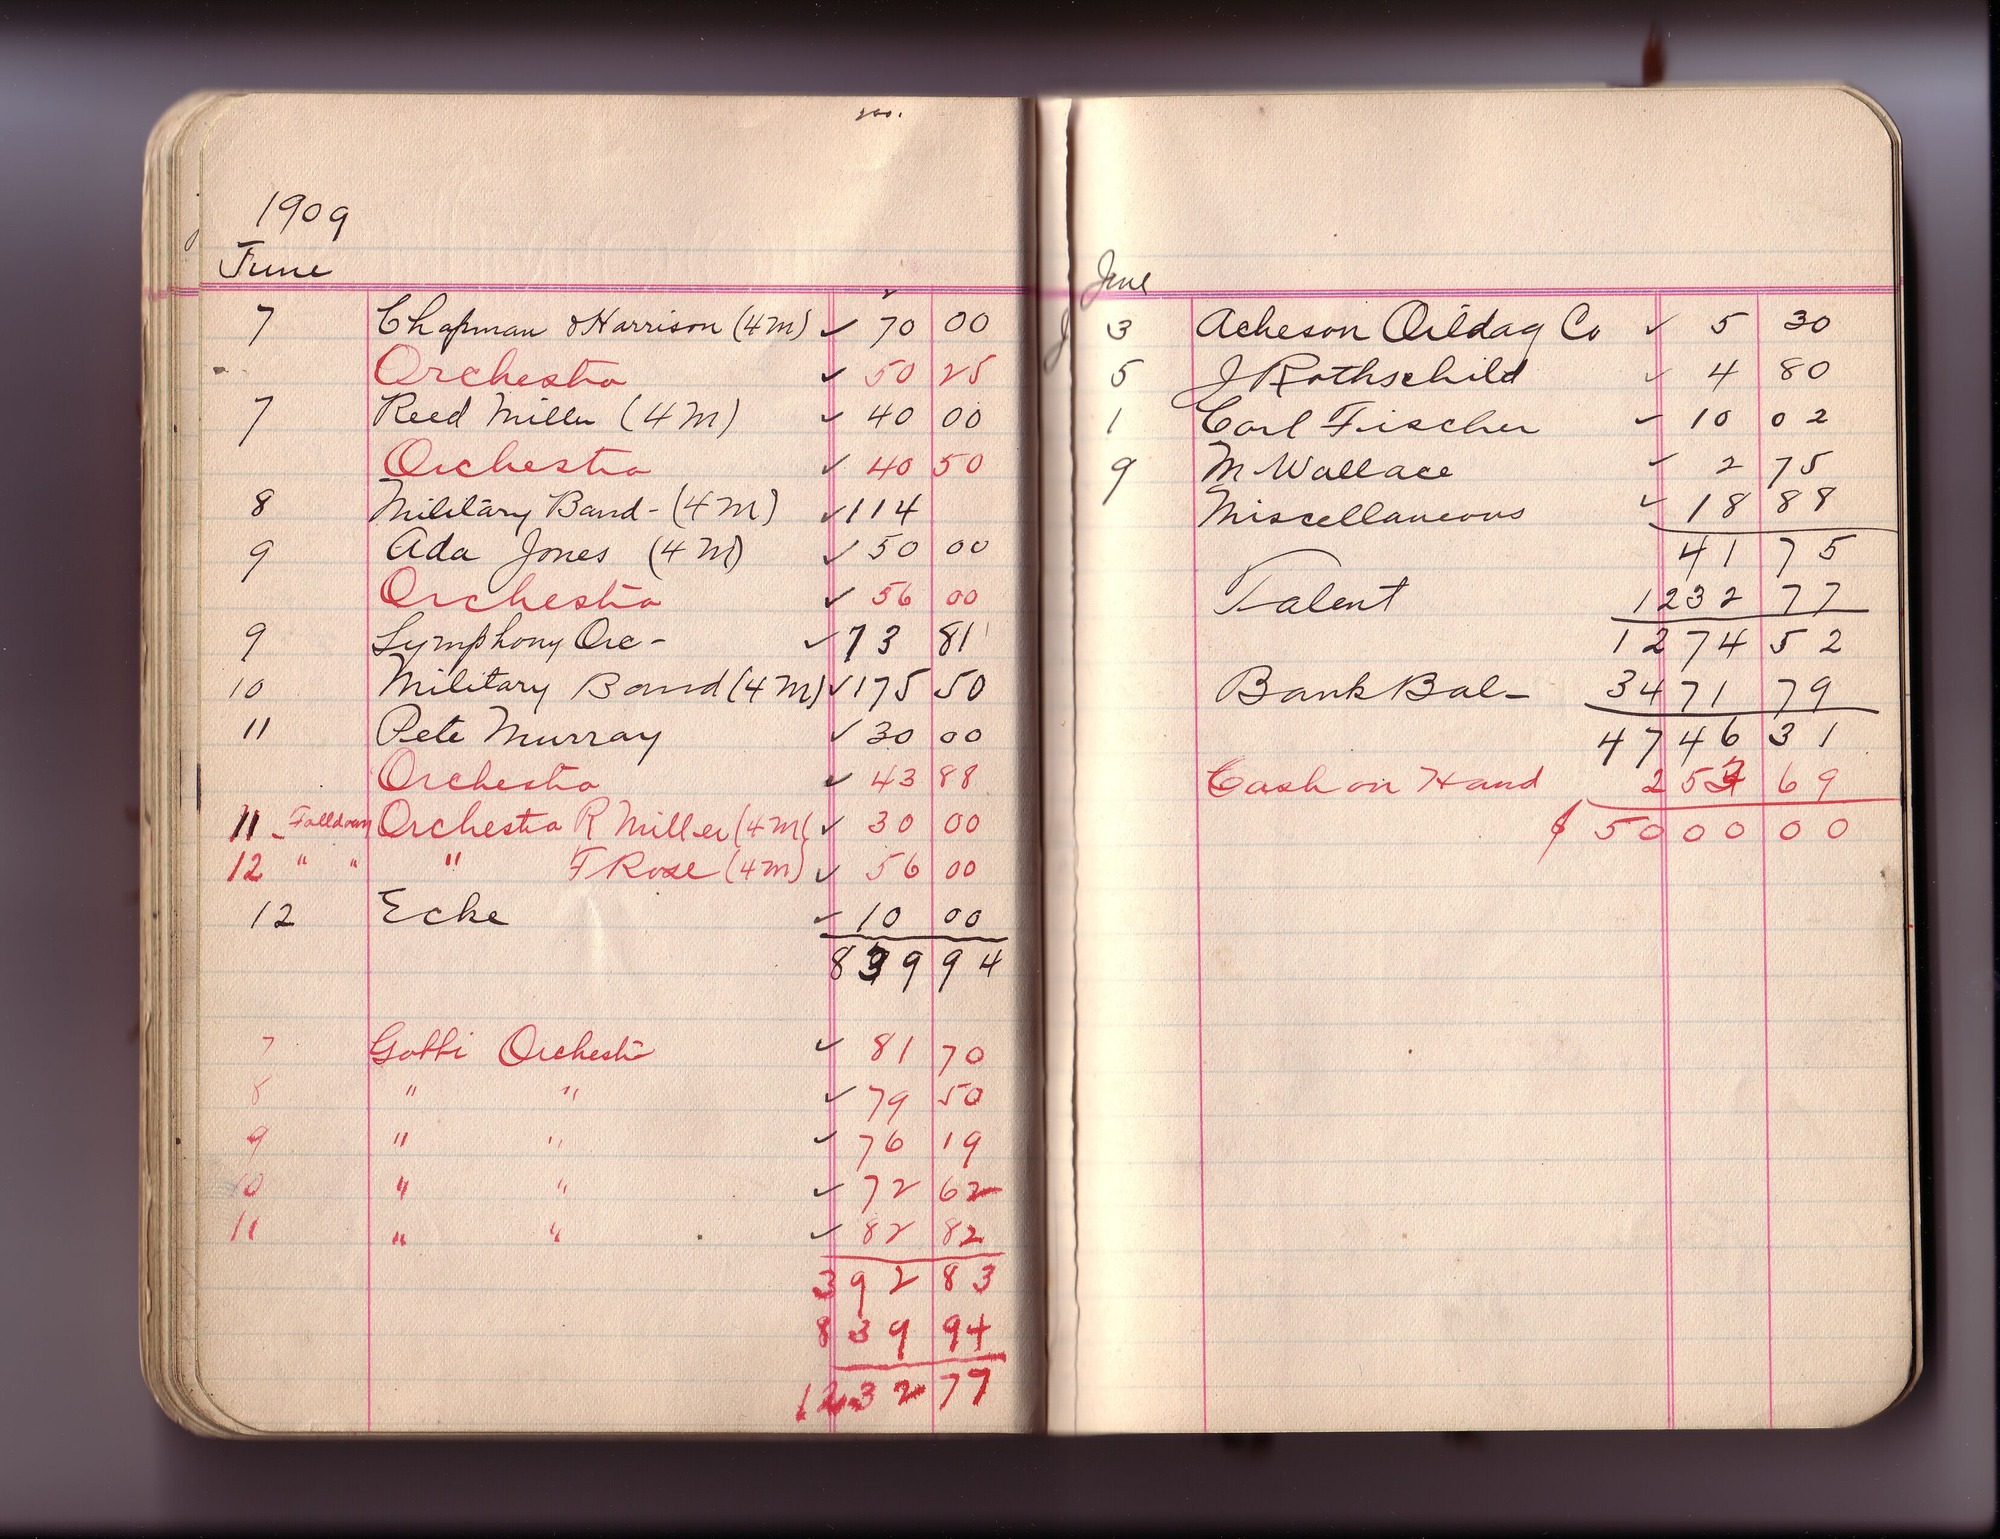 1909
June
7 Chapman & Harrison (4M) ✓ 70 00
Orchestra ✓ 50 25
7 Reed Miller (4M) ✓ 40 00
Orchestra ✓ 40 50
8 Military Band - (4M) ✓ 114
9 Ada Jones (4M) ✓ 50 00
Orchestra ✓ 56 00
9 Symphony Orc - ✓ 73 81
10 Military Band (4M) ✓ 175 50
11 Pete Murray ✓ 30 00
Orchestra ✓ 43 88
11 - Falldown Orchestra R Miller (4M( ✓ 30 00
12 " " " F Rose (4M) ✓ 56 00
12 Ecke ✓ 10 00
839 94
7 Gobbi Orchestra ✓ 81 70
8 " " ✓ 79 50
9 " " ✓ 76 19
10 " " ✓ 72 62
11 " " ✓ 82 82
392 83
839 94
1232 77
June
3 Acheson Oildag Co ✓ 5 30
5 J Rothschild ✓ 4 80
1 Carl Fischer ✓ 10 02
9 M Wallace ✓ 2 75
Miscellaneous ✓ 18 88
41 75
Talent 1232 77
1274 52
Bank Bal - 3471 79
4746 31
Cash on Hand 253 69
$ 5000 00